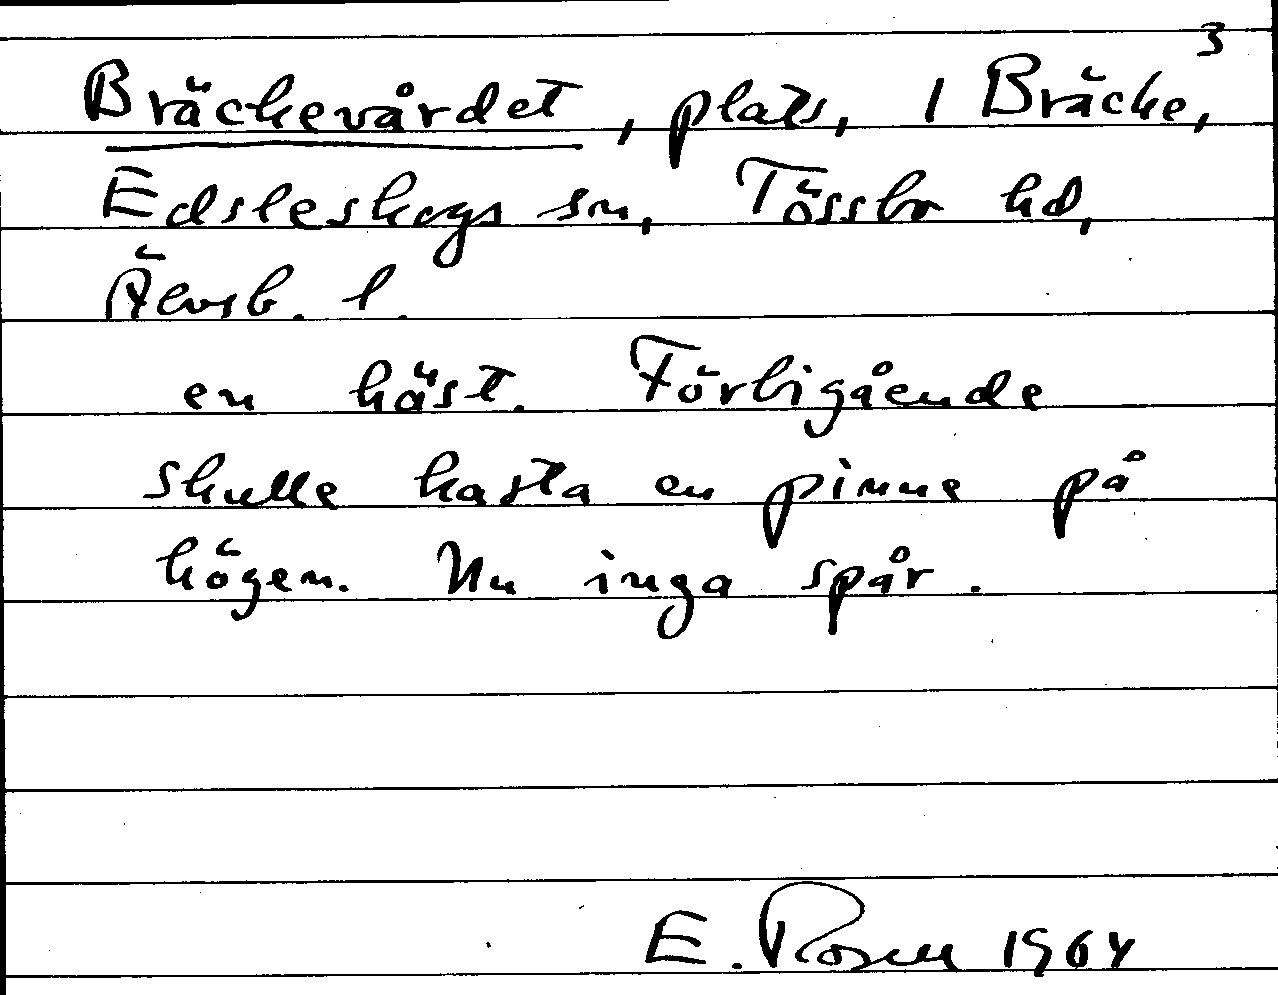 3
Bräckevårdet, plats, 1 Bräcke,
Edsleskogs sn, Tössbo hd,
Älvsb. l.
en häst. Förbigående
skulle kasta en pinne på
högen. Nu inga spår.
E. Rosen 1964